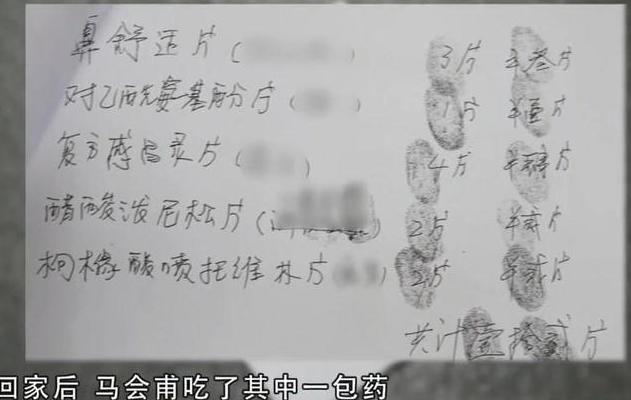 鼻舒适片( ) 3片 叁片
对乙酰氨基酚片( ) 1片 壹片
复方感冒灵片( ) 4片 片
醋酸泼尼松片( ) 2片 贰片
枸橼酸喷托维林片( ) 2片 贰片
共计壹拾贰片
回家后 马会甫吃了其中一包药